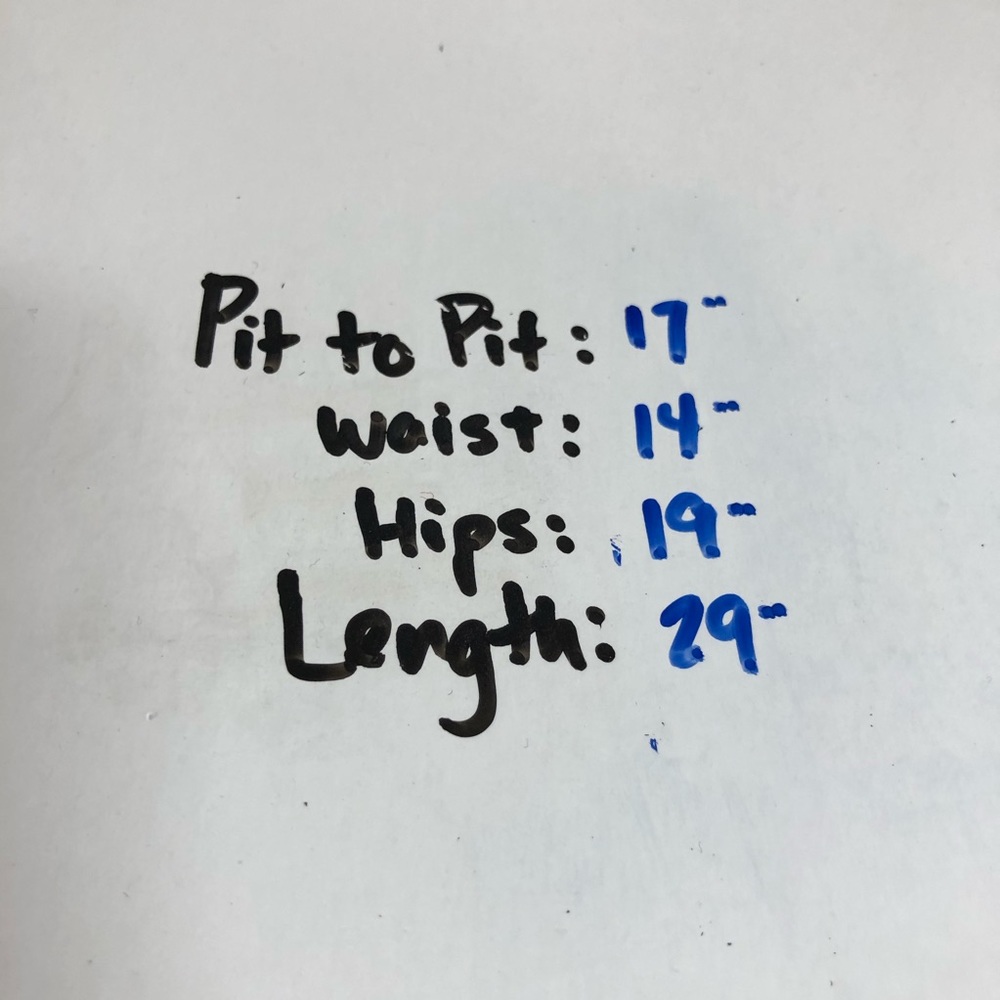 Pit to Pit: 17"
Waist: 14"
Hips: 19"
Length: 29"